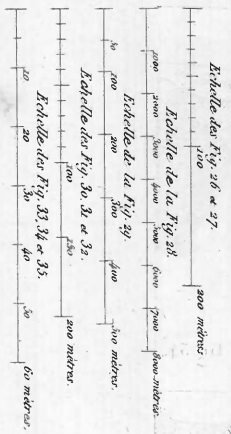 Echelle des Fig. 26 et 27.
100 200 mètres.
Echelle de la Fig. 28.
1000 2000 3000 4000 5000 6000 7000 8000 mètres
Echelle de la Fig. 29
50 100 200 300 400 500 mètres.
Echelle des Fig. 30, 31 et 32.
100 150 200 mètres.
Echelle des Fig. 33, 34 et 35.
10 20 30 40 50 60 mètres.